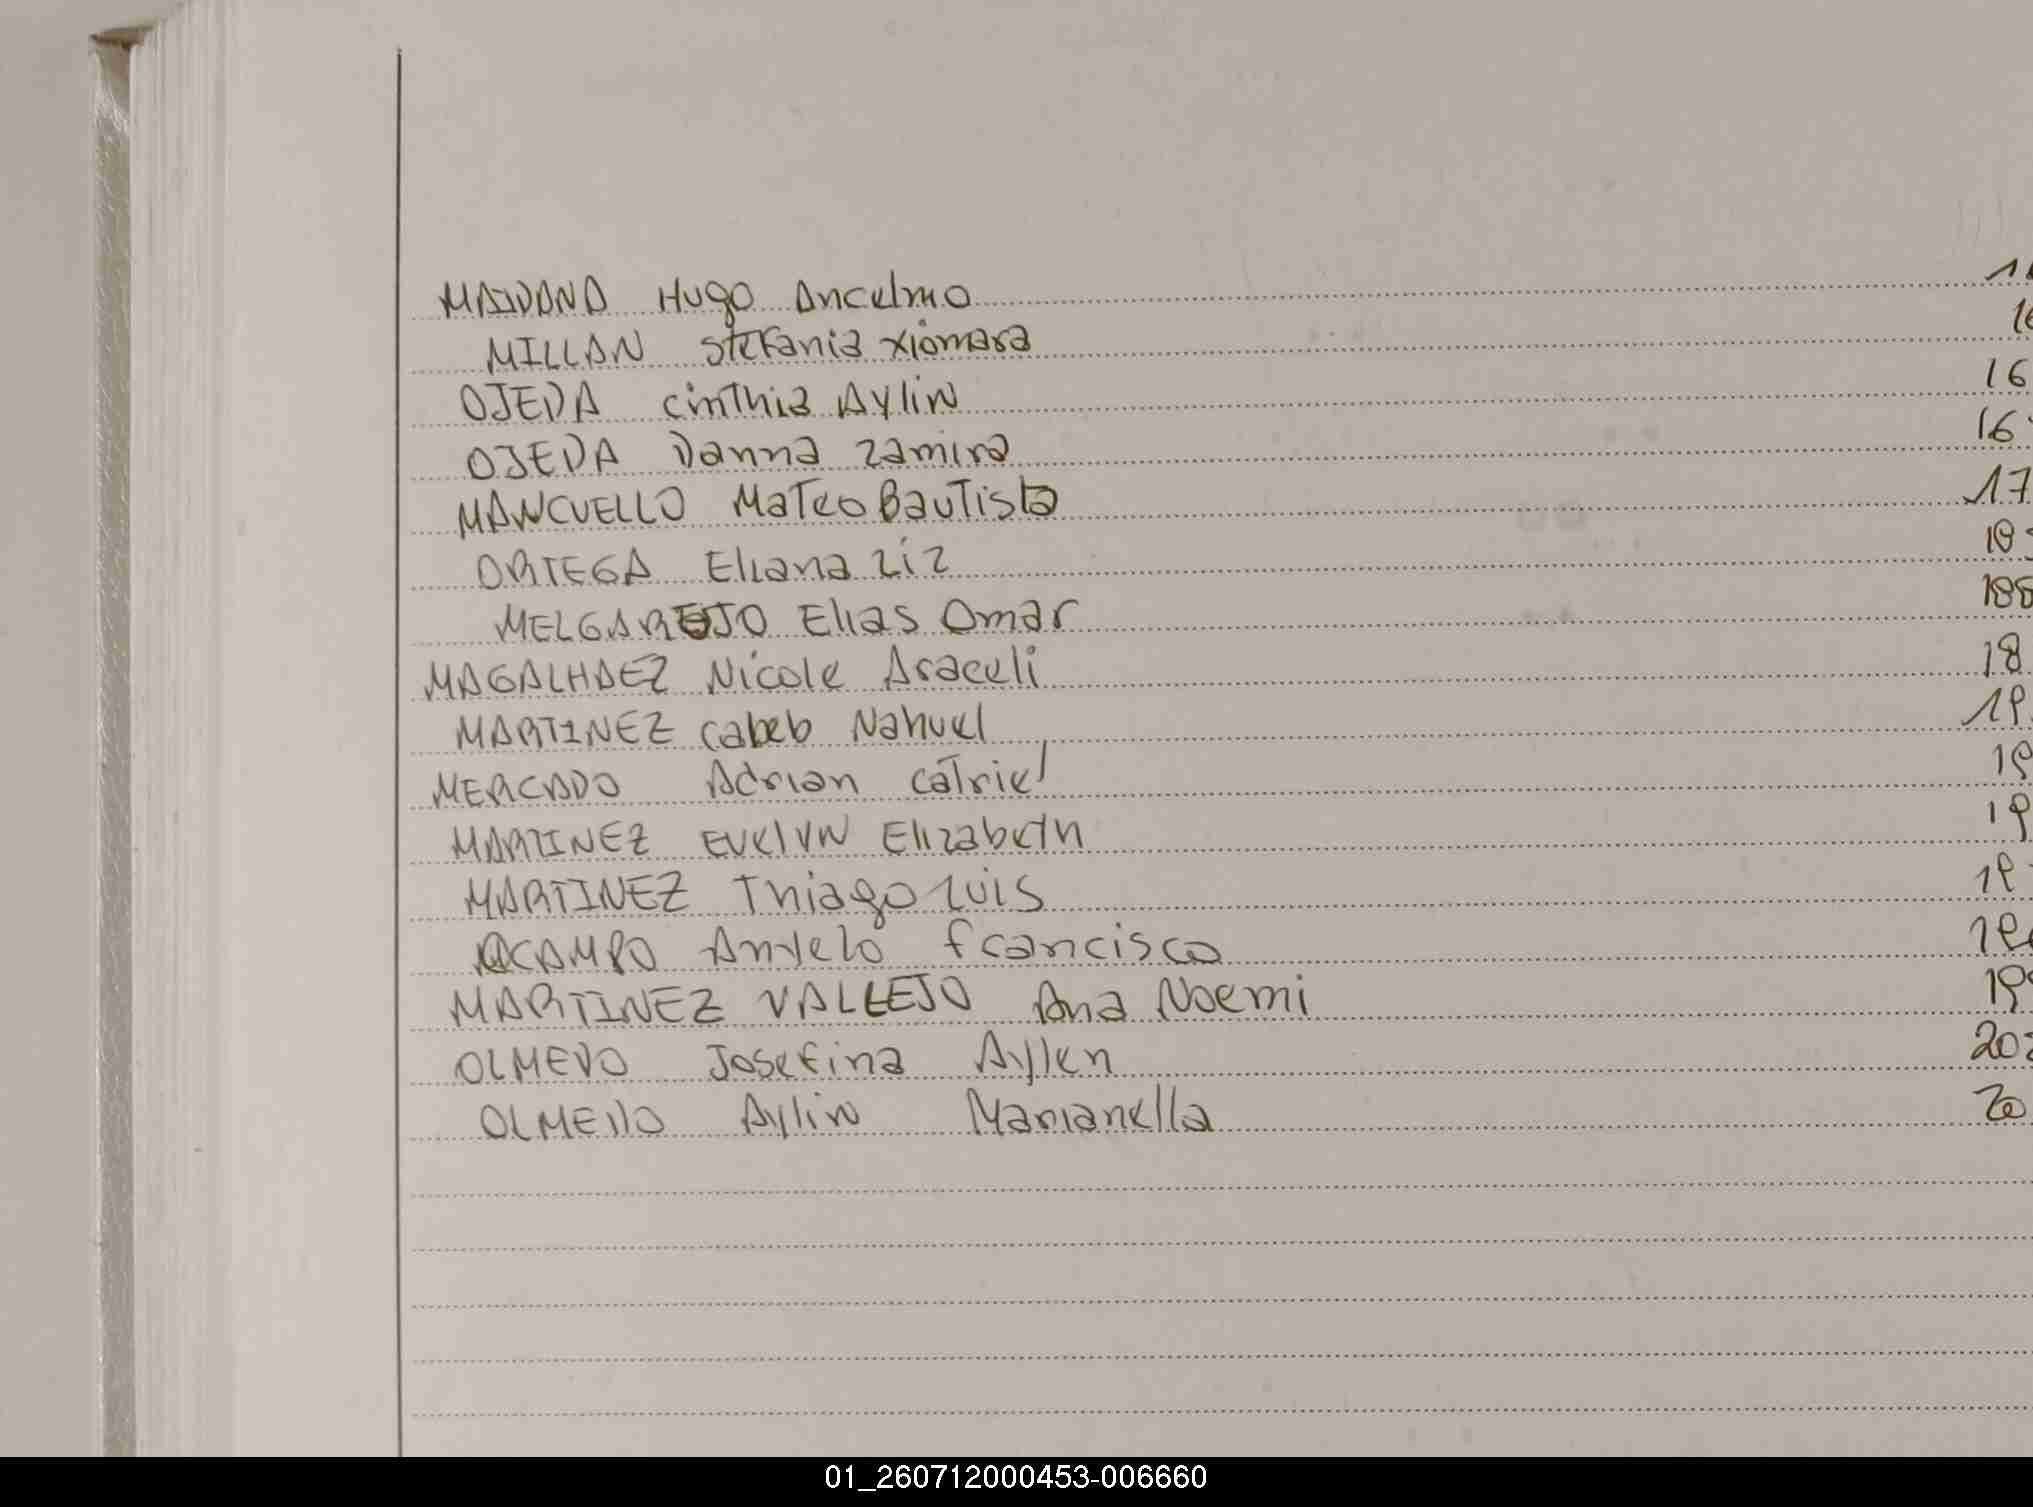 MAIDANA Hugo Ancelmo
MILLAN Stefania Xiomara
OJEDA Cinthia Aylin 16
OJEDA Danna Zamira 16
MANCUELLO Mateo Bautista 17
ORTEGA Eliana Liz 18
MELGAREJO Elias Omar 188
MAGALHAEZ Nicole Araceli 18
MARTINEZ Caleb Nahuel 19
MERCADO Adrian Catriel 19
MARTINEZ Evelyn Elizabeth 19
MARTINEZ Thiago Luis 19
OCAMPO Anyelo Francisco 19
MARTINEZ VALLEJO Ana Noemi 19
OLMEDO Josefina Aylen 20
OLMEDO Aylin Marianella 20
01_260712000453-006660